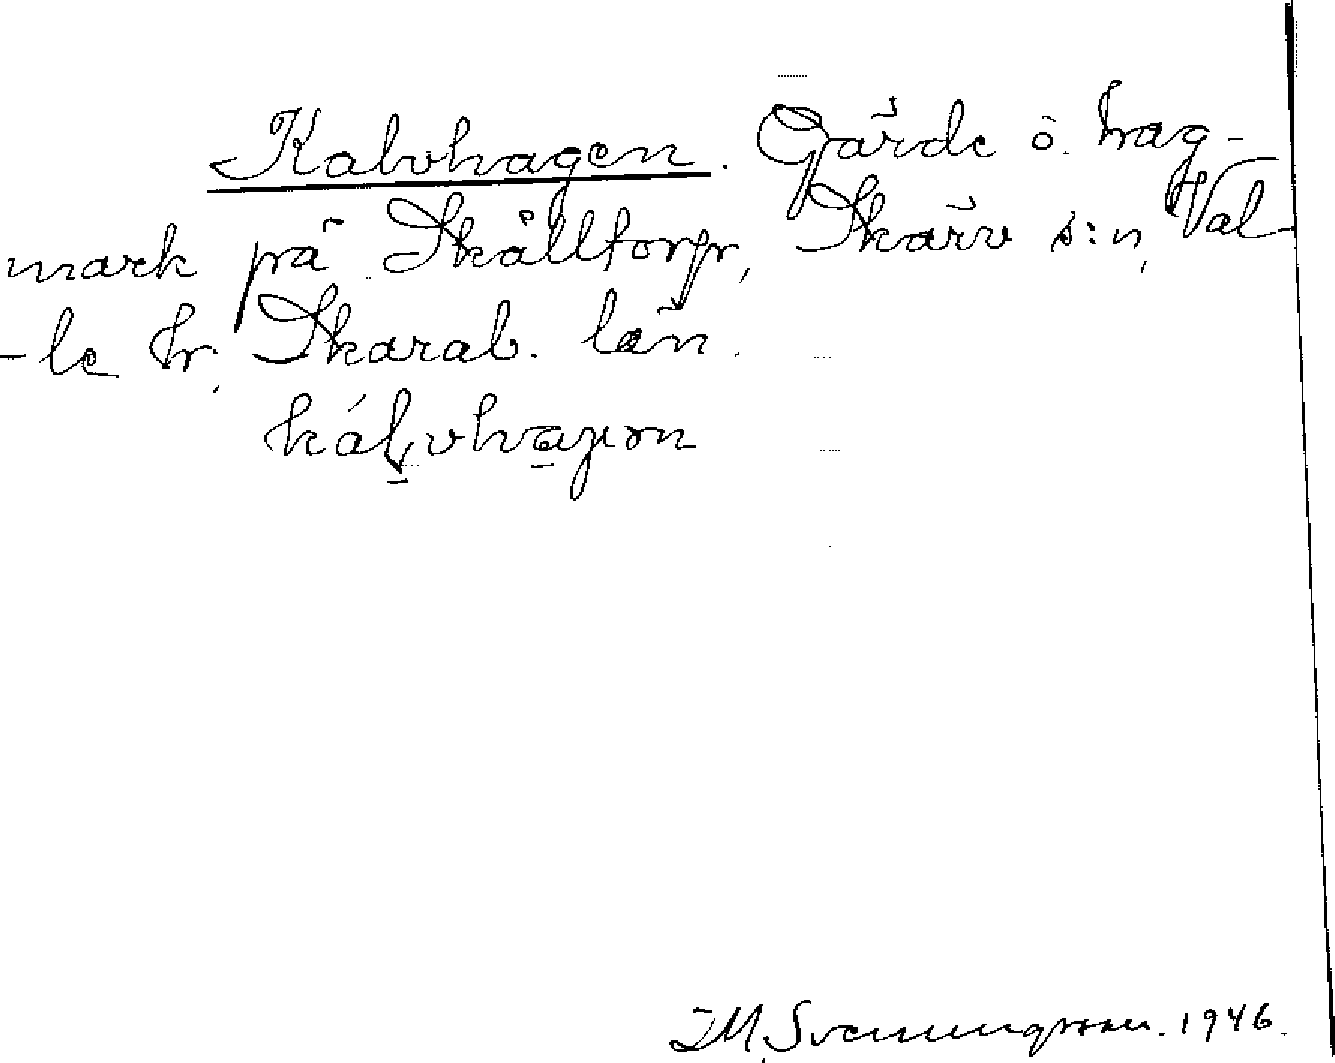 Kalvhagen. Gärde o. hag-
mark på Skålltorp, Skärv s:n, Val-
-le hr, Skarab. län.
I.M. Svenungsson. 1946.